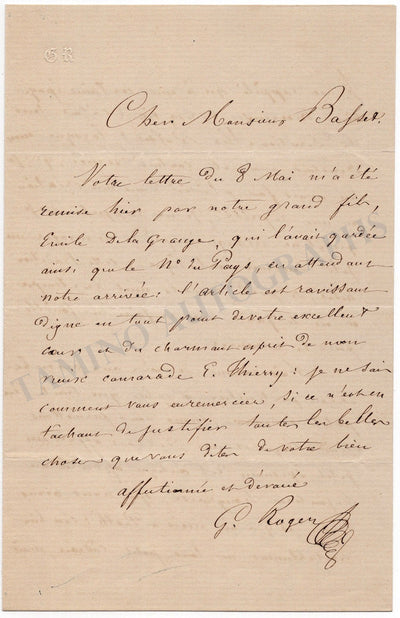 GR
Cher Monsieur Basset.
Votre lettre du 8 Mai m'a été
remise hier par notre grand fils,
Emile Delagrange, qui l'avait gardée
ainsi que le No. du Pays, en attendant
notre arrivée: l'article est ravissant
digne en tout point de votre excellent
cœur et du charmant esprit de mon
vieux camarade E. Thierry: je ne sais
comment vous en remercier, si ce n'est en
tachant de justifier toutes les belles
choses que vous dites de votre bien
affectionné et dévoué
G. Roger
TAMINO AUTOGRAPHS